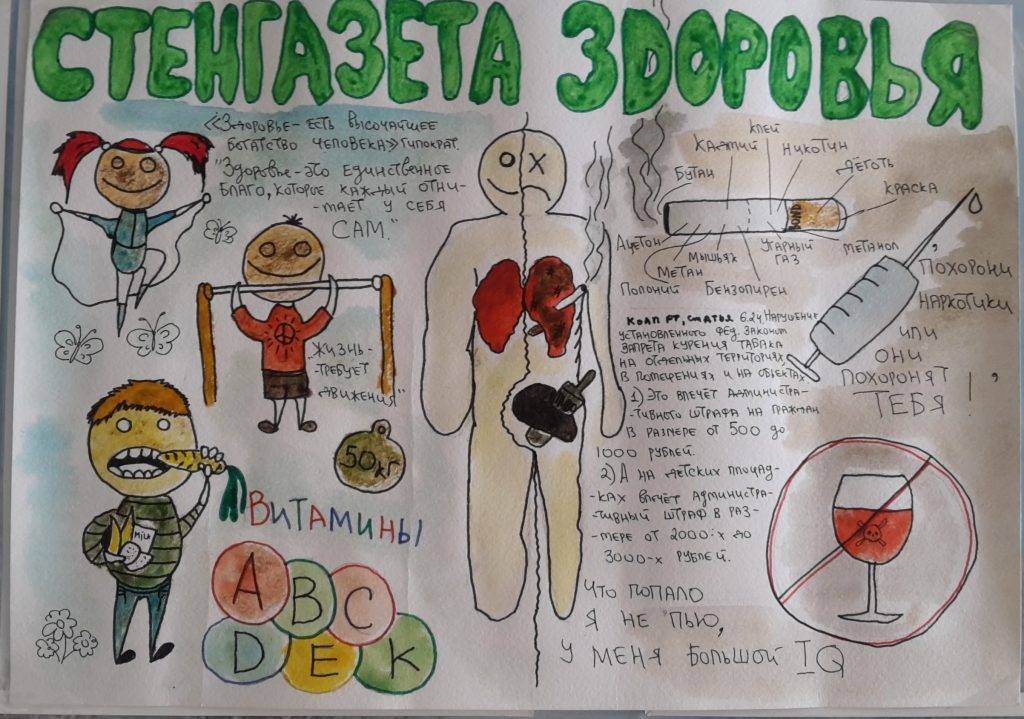 СТЕНГАЗЕТА ЗДОРОВЬЯ
«Здоровье - есть высочайшее
богатство человека» Гипократ.
"Здоровье - это единственное
благо, которое каждый отни-
-мает у себя
сам."
"Жизнь -
-требует
движения"
50кг
Milk
Витамины
A B C
D E K
клей
Кадмий
никотин
Бутан
деготь
краска
BOND
Ацетон
Метан
Мышьяк
Угарный
газ
Метанол
Полоний
Бензопирен
КоАП РТ, статья 6.24 Нарушение
установленного фед. законом
запрета курения табака
на отдельных территориях,
в помещениях и на объектах
1) Это влечёт администра-
-тивного штрафа на граждан
в размере от 500 до
1000 рублей.
2) А на детских площад-
-ках влечёт администра-
-тивный штраф в раз-
-мере от 2000-х до
3000-х рублей.
Похорони
наркотики
или
они
похоронят
ТЕБЯ!
Что попало
я не пью,
у меня большой IQ